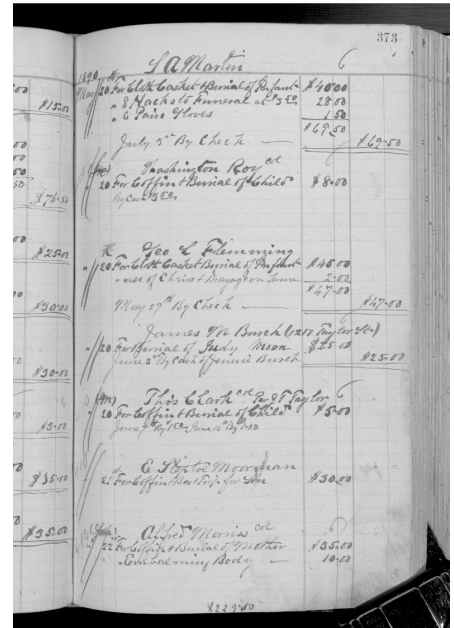 373
S A Martin
1890
May 20 For Cloth Casket & Burial of Infant $40.00
" 8 Hacks to Funeral at $3.50 28.00
" 6 Pairs Gloves 1.50
$69.50
July 3rd By Check — $69.50
Washington Roy cd
20 For Coffin & Burial of Child $8.00
By Cash $3.50
Geo L Flemming
20 For Cloth Casket & Burial of Infant $45.00
" use of 2.00
$47.00
May 29th By Check — $47.00
James W Burch (1217 Taylor St)
20 For Burial of Judy Moon $25.00
June 3rd By Cash of Jennie Burch $25.00
Thos Clark cd Per J T Taylor
20 For Coffin & Burial of Child $5.00
June
E Steptoe Moorman
21 For Coffin & Box for Son $30.00
Alfred Morriss cd
22 For Coffin & Burial of Mother $35.00
" Embalming Body — 10.00
$229.50
$15.00
$76.50
$25.00
$30.00
$30.00
$5.00
$35.00
$35.00